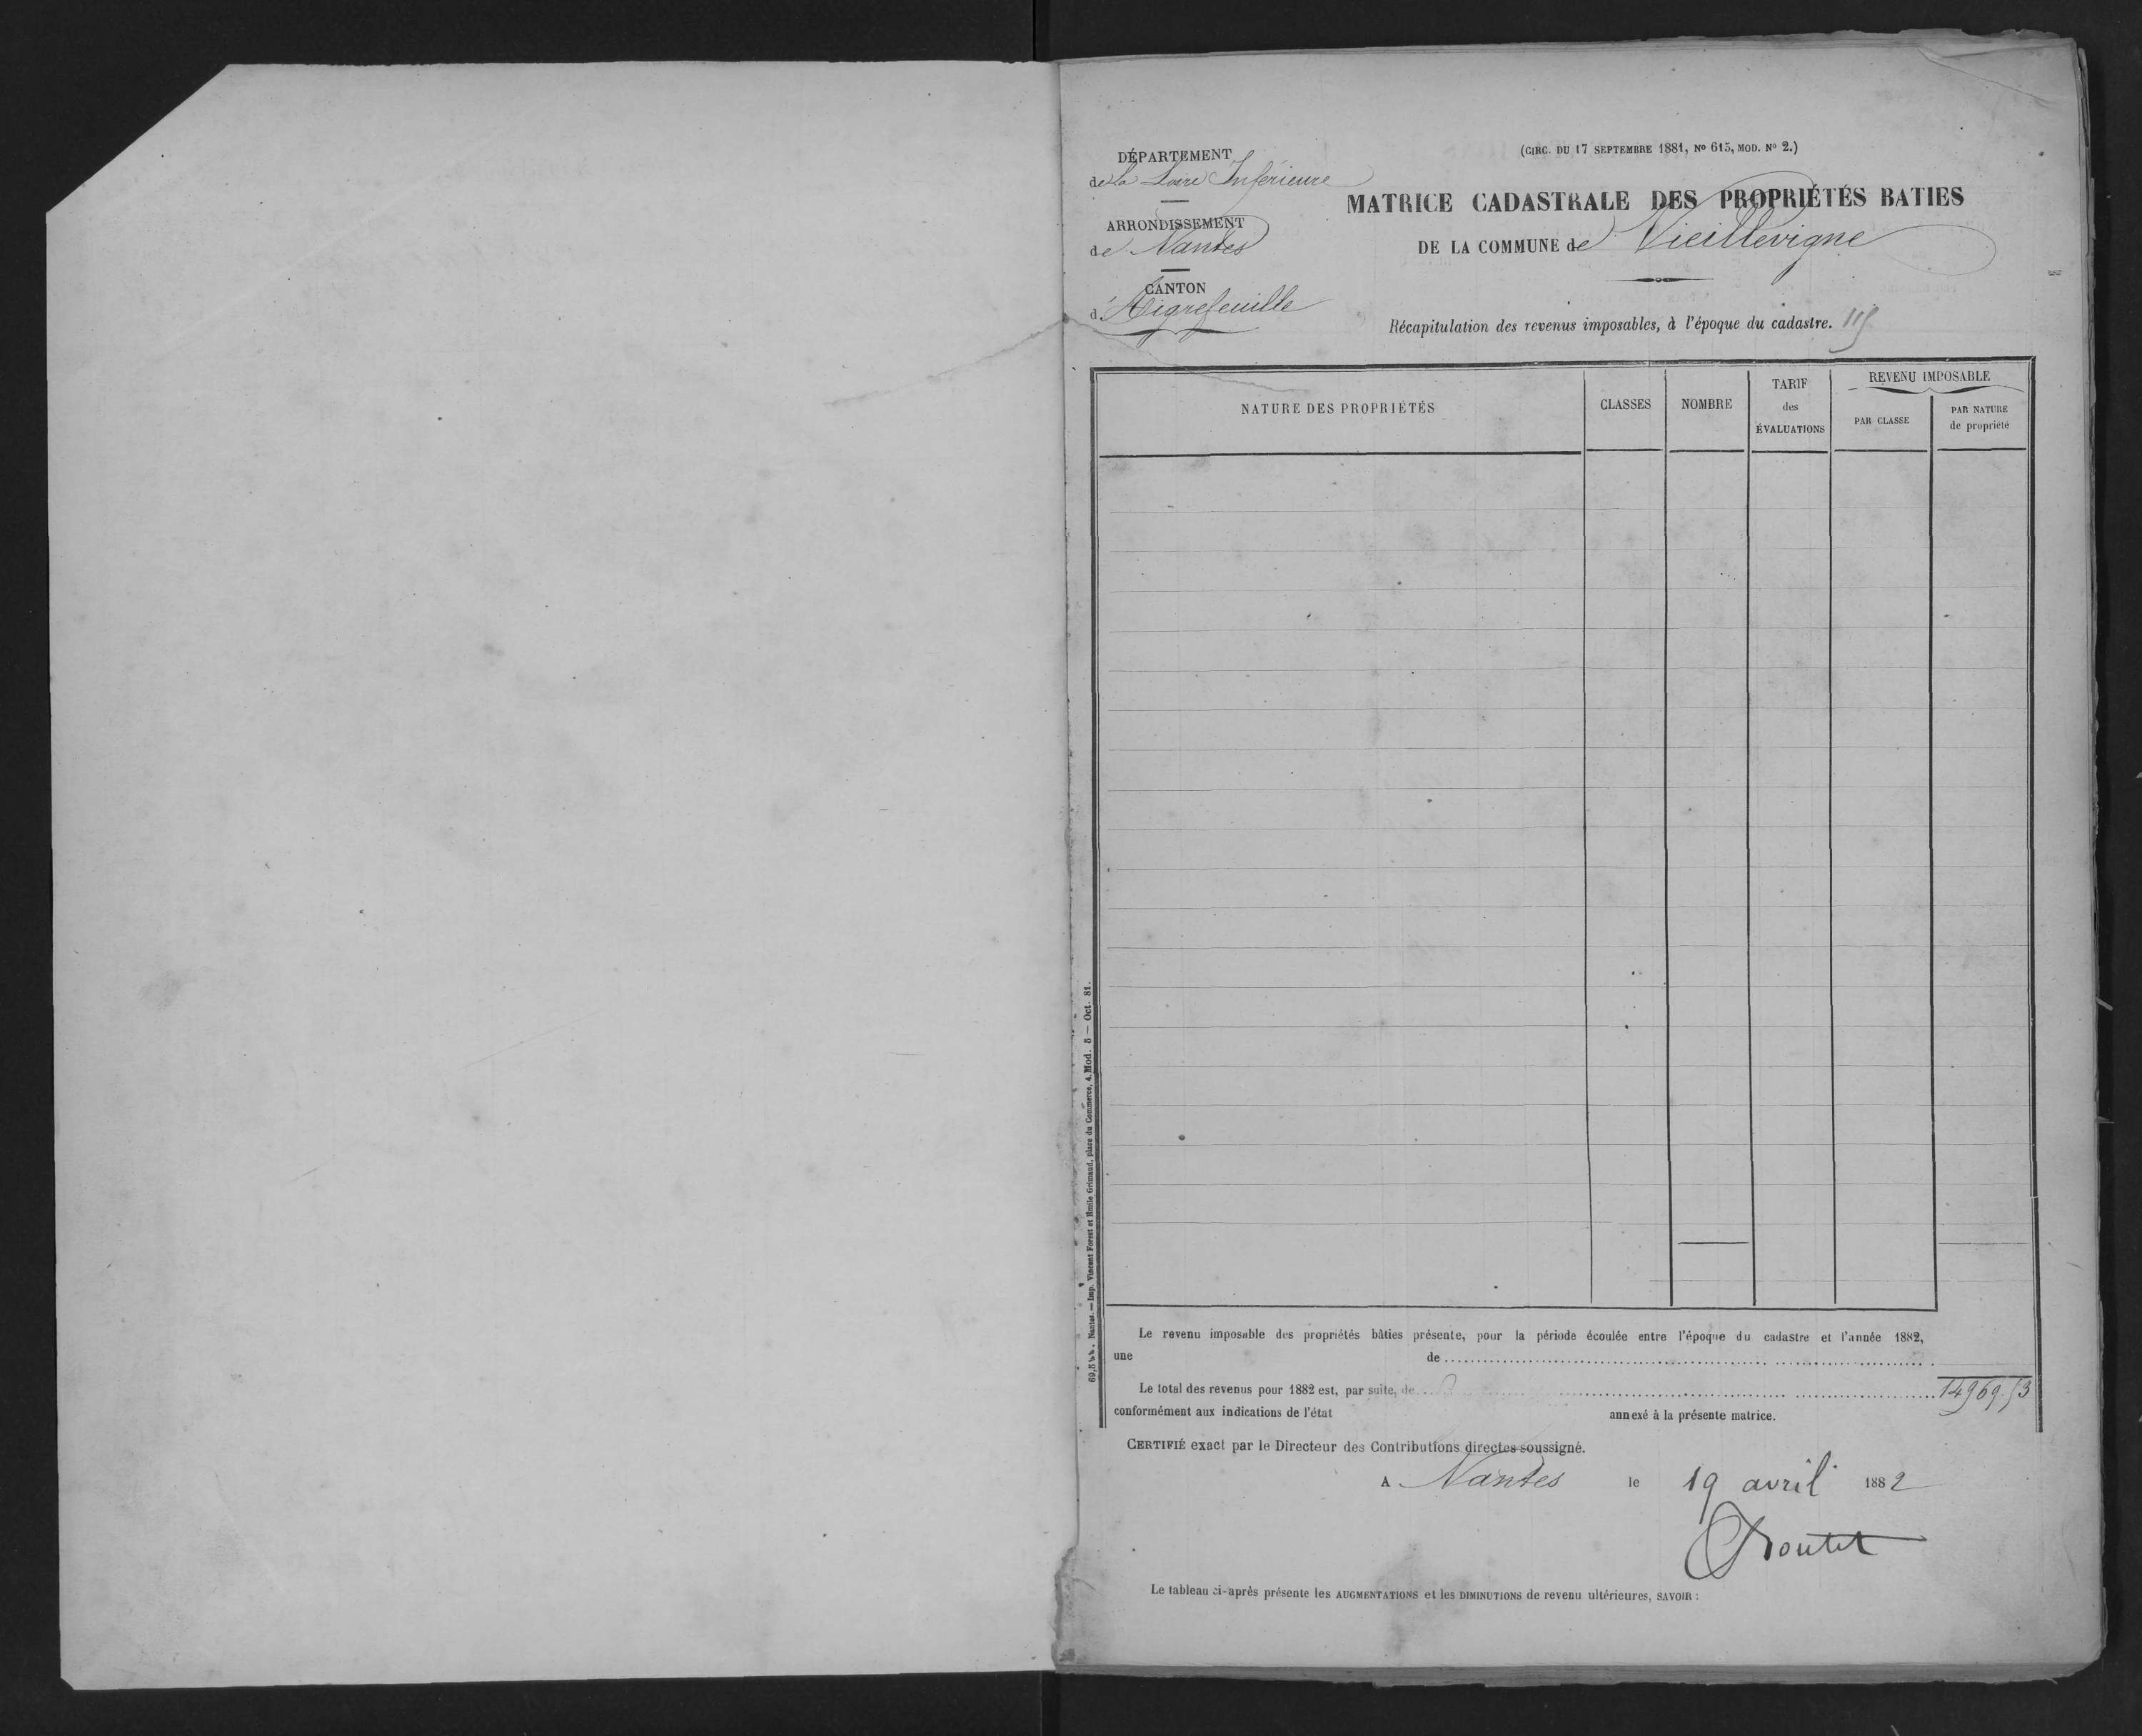 DÉPARTEMENT
de La Loire Inférieure
ARRONDISSEMENT
de Nantes
CANTON
d'Aigrefeuille
(CIRC. DU 17 SEPTEMBRE 1881, No 615, MOD. No 2.)
MATRICE CADASTRALE DES PROPRIÉTÉS BATIES
DE LA COMMUNE de Vieillevigne
Récapitulation des revenus imposables, à l'époque du cadastre.
NATURE DES PROPRIÉTÉS
CLASSES
NOMBRE
TARIF
des
ÉVALUATIONS
REVENU IMPOSABLE
PAR CLASSE
PAR NATURE
de propriété
Nantes. — Imp. Vincent Forest et Emile Grimaud, place du Commerce, 4. Mod. 5 — Oct. 81.
Le revenu imposable des propriétés bâties présente, pour la période écoulée entre l'époque du cadastre et l'année 1882,
une de
Le total des revenus pour 1882 est, par suite, de 14969.53
conformément aux indications de l'état annexé à la présente matrice.
CERTIFIÉ exact par le Directeur des Contributions directes soussigné.
A Nantes le 19 avril 1882
Le tableau ci-après présente les AUGMENTATIONS et les DIMINUTIONS de revenu ultérieures, SAVOIR :